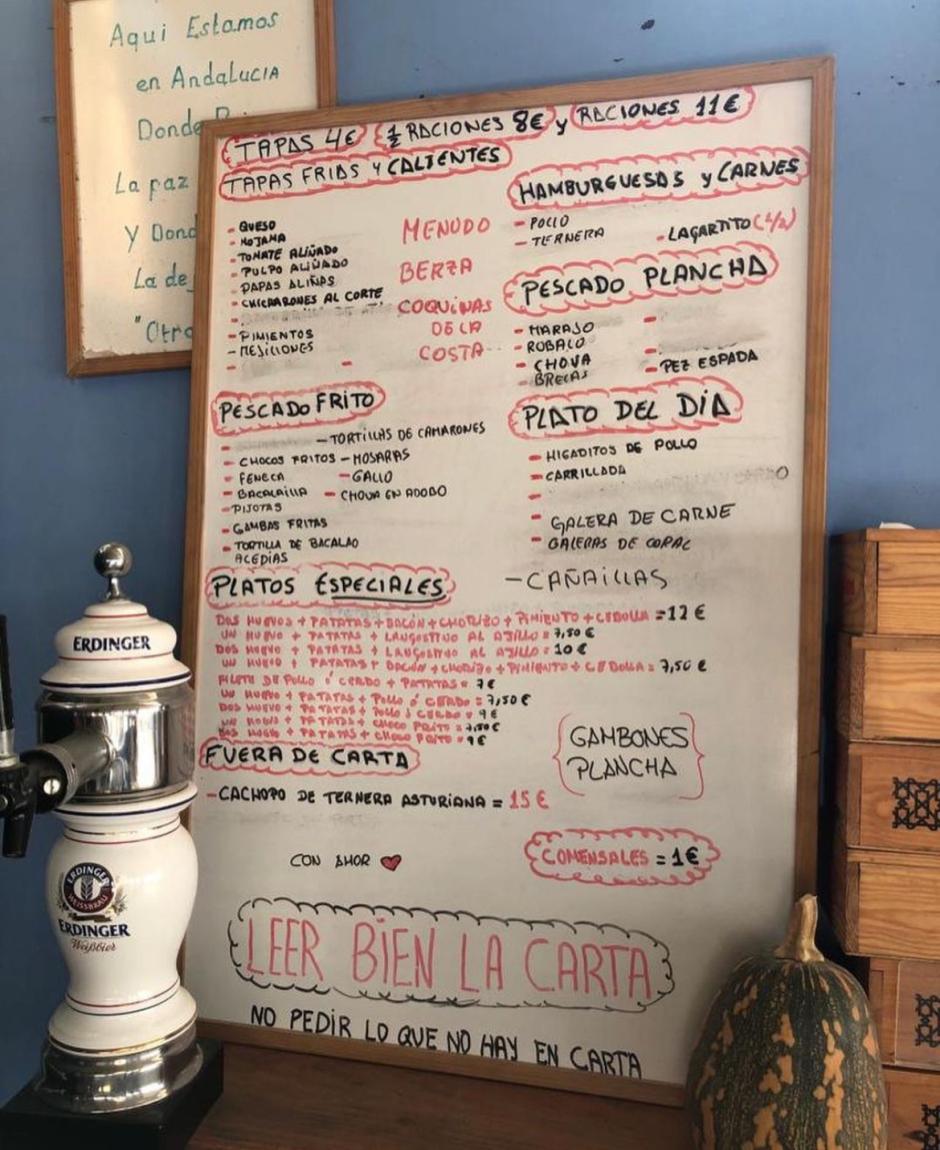 Aqui Estamos
en Andalucia
Donde
La paz
Y Dond
La de
"Otro
TAPAS 4€ ½ RACIONES 8€ y RACIONES 11€
TAPAS FRIAS Y CALIENTES
- QUESO
- MOJAMA
- TOMATE ALIÑADO
- PULPO ALIÑADO
- PAPAS ALIÑAS
- CHICHARONES AL CORTE
- PIMIENTOS
- MEJILLONES
MENUDO
BERZA
COQUINAS
DE LA
COSTA
HAMBURGUESAS y CARNES
- POLLO
- TERNERA
- LAGARTITO (1/2)
PESCADO PLANCHA
- MARAJO
- ROBALO
- CHOVA
- BRECAS
- PEZ ESPADA
PESCADO FRITO
- TORTILLAS DE CAMARONES
- CHOCOS FRITOS - MOJARAS
- FENECA - GALLO
- BACALAILLA - CHOVA EN ADOBO
- PIJOTAS
- GAMBAS FRITAS
- TORTILLA DE BACALAO
ACEDIAS
PLATO DEL DÍA
- HIGADITOS DE POLLO
- CARRILLADA
- GALERA DE CARNE
- GALERAS DE CORAL
- CAÑAILLAS
PLATOS ESPECIALES
DOS HUEVOS + PATATAS + BACÓN + CHORIZO + PIMIENTO + CEBOLLA = 12 €
UN HUEVO + PATATAS + LANGOSTINO AL AJILLO = 7,50 €
DOS HUEVO + PATATAS + LANGOSTINO AL AJILLO = 10 €
UN HUEVO + PATATAS + BACON + CHORIZO + PIMIENTO + CEBOLLA = 7,50 €
FILETE DE POLLO Ó CERDO + PATATAS = 7 €
UN HUEVO + PATATAS + POLLO Ó CERDO = 7,50 €
DOS HUEVO + PATATAS + POLLO Ó CERDO = 9 €
UN HUEVO + PATATAS + CHOCO FRITO = 7,50 €
DOS HUEVO + PATATAS + CHOCO FRITO = 9 €
FUERA DE CARTA
- CACHOPO DE TERNERA ASTURIANA = 15 €
GAMBONES
PLANCHA
CON AMOR
COMENSALES = 1€
LEER BIEN LA CARTA
NO PEDIR LO QUE NO HAY EN CARTA
ERDINGER
ERDINGER
WEISSBRÄU
ERDINGER
Weißbier